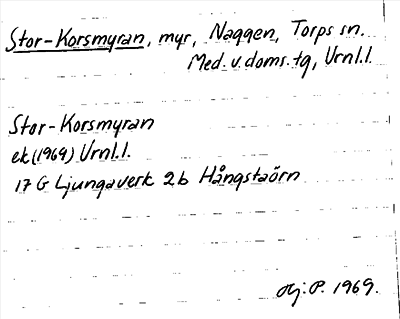 Stor-Korsmyran, myr, Naggen, Torps sn.
Med. v. doms. tg, Vrnl.l.
Stor-Korsmyran
ek (1969) Vrnl.l.
17 G Ljungaverk 2b Hångstaörn
P. 1969.